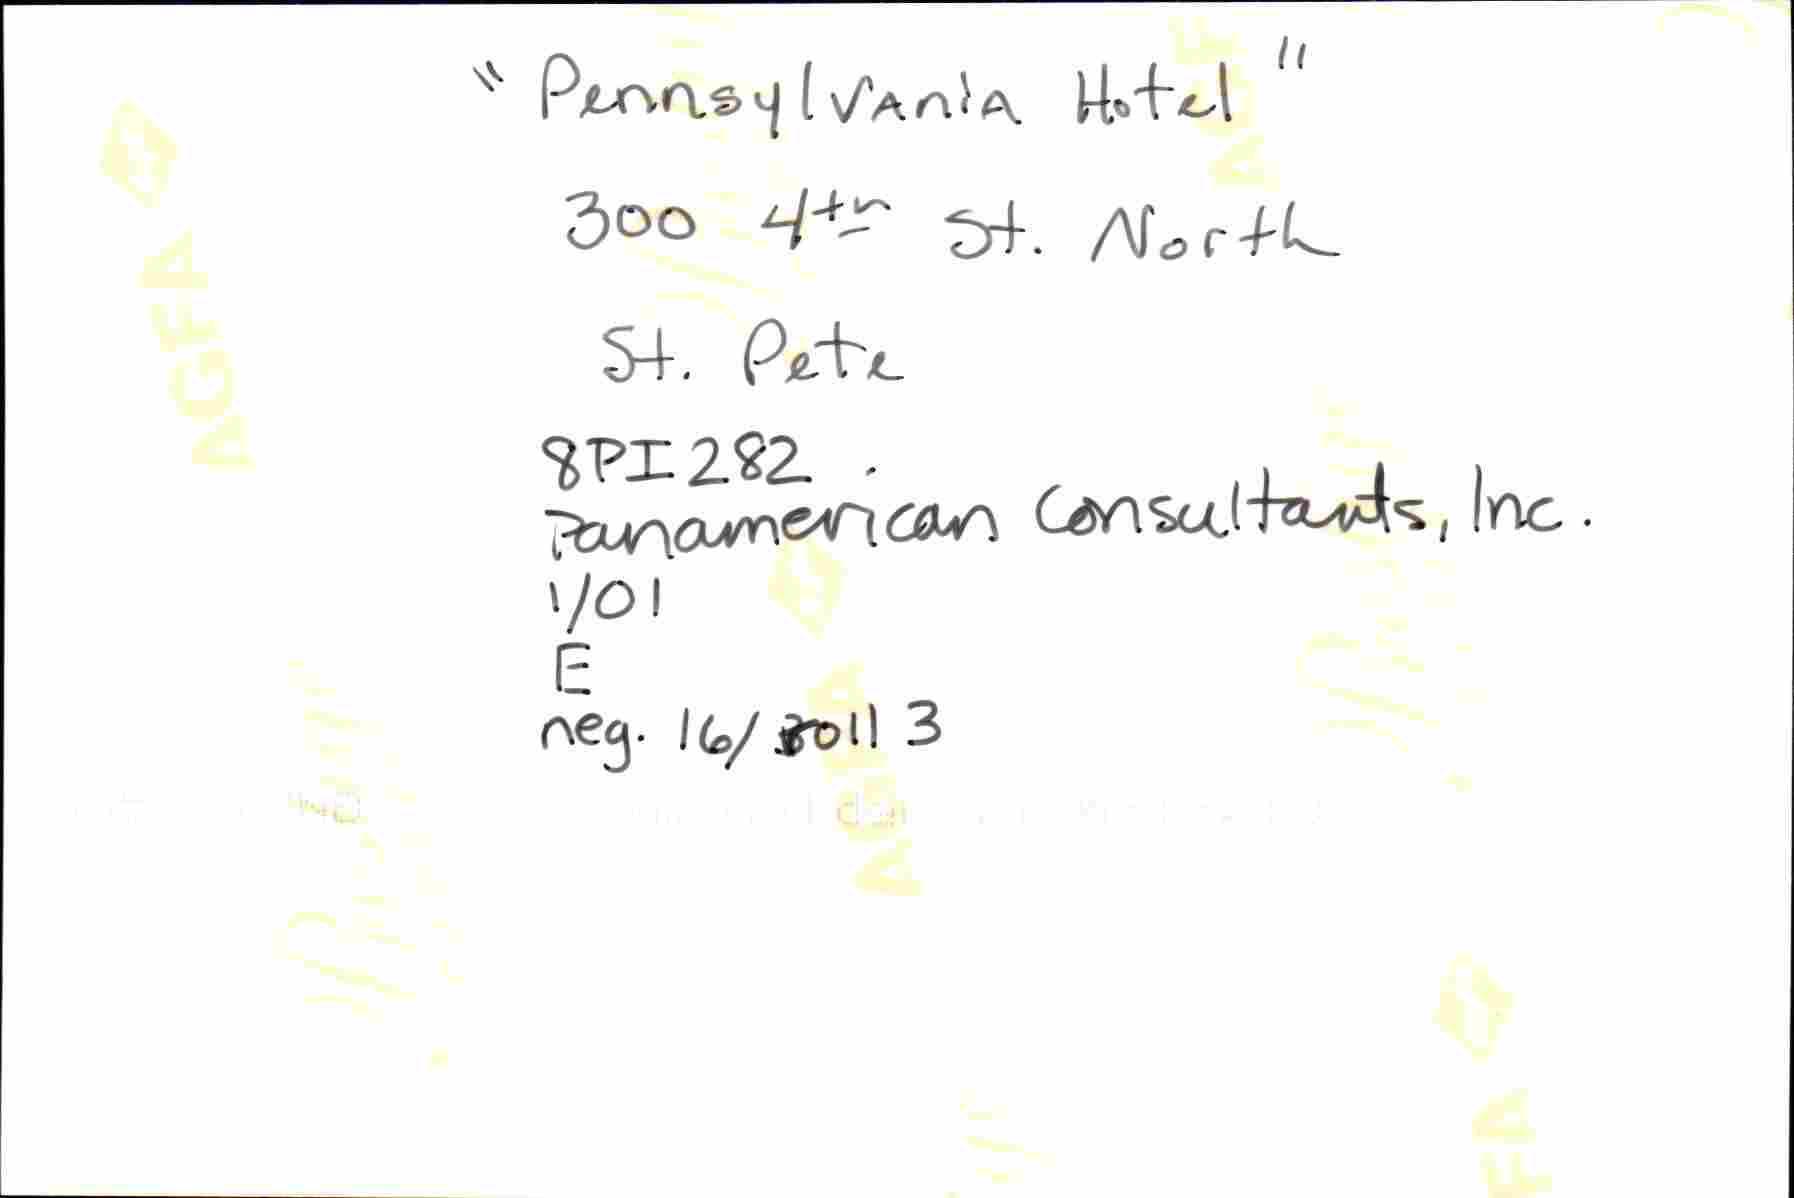 "Pennsylvania Hotel"
300 4th St. North
St. Pete
8PI282
Panamerican Consultants, Inc.
1/01
E
neg. 16/roll 3
AGFA
AGFA
AGFA